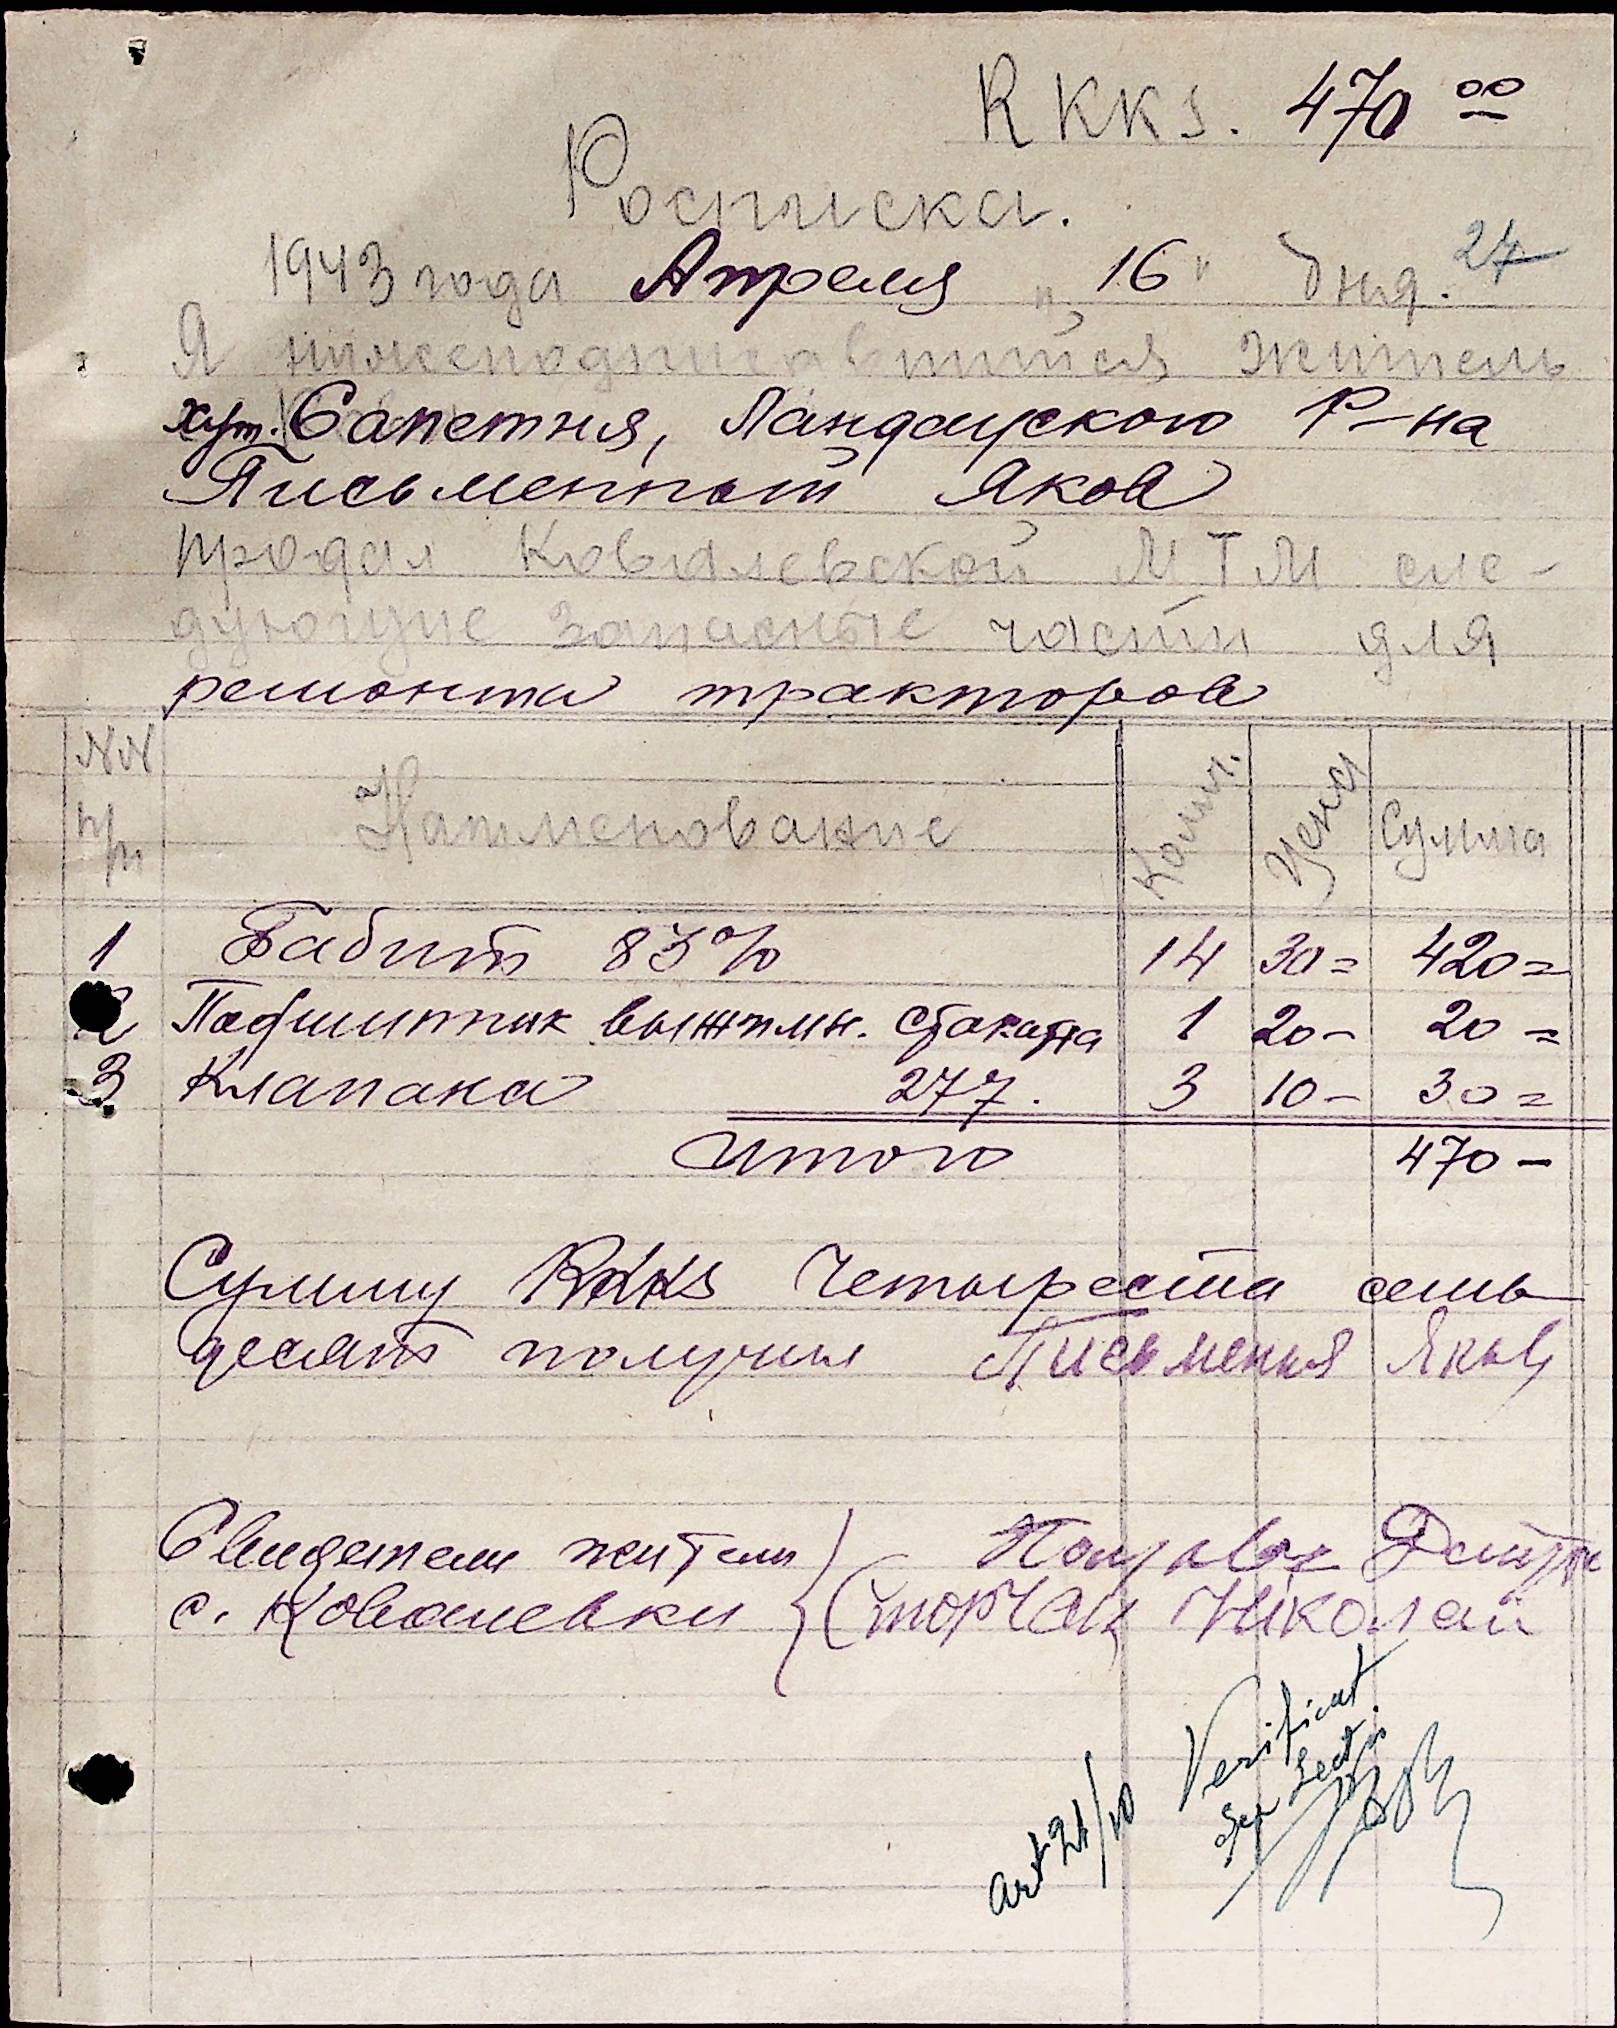 RKKS. 470 00
Росписка.
1943 года Апреля " 16 " дня. 27
Я нижеподписавшийся житель
хут. Сапетня, Ландауского Р-на
Письменный Яков
продал Ковалевской МТМ сле-
дующие запасные части для
ремонта тракторов
NN п/п Наименование Колич. Цена Сумма
1 Баббит 83% 14 30= 420=
2 Подшипник выжимн. стакана 1 20- 20=
3 Клапана 277. 3 10- 30=
Итого 470-
Сумму RKKS Четыреста семь
десят получил Письменый Яков
Свидетели жители
с. Ковалевки Сторчак Николай
art 21/10 Verificat
Șef Secți